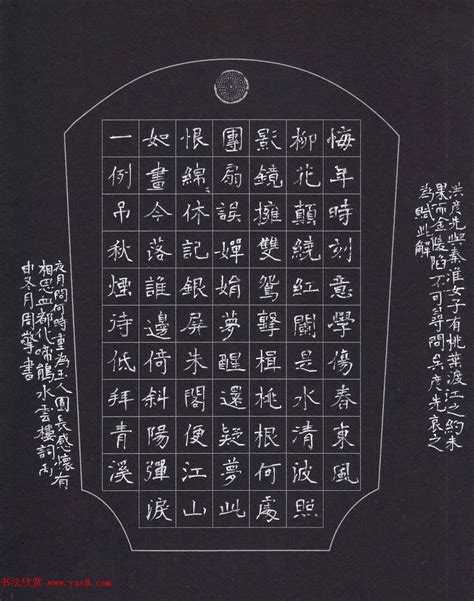 洪彥先與秦淮女子有桃葉渡江之約未
果而金陵陷不可尋問矣彥先哀之
為賦此解
悔年時刻意學傷春東風
柳花顛繞紅闌是水清波照
影鏡擁雙鴛擊楫桃根何處
團扇誤嬋娟夢醒還疑夢此
恨綿休記銀屏朱閣便江山
如畫今落誰邊倚斜陽彈淚
一例吊秋煙待低拜青溪
夜月問何時重為主人圓長感懷有
相思血都化啼鵑水雲樓詞丙
申冬月周書
书法欣赏 www.yac8.com